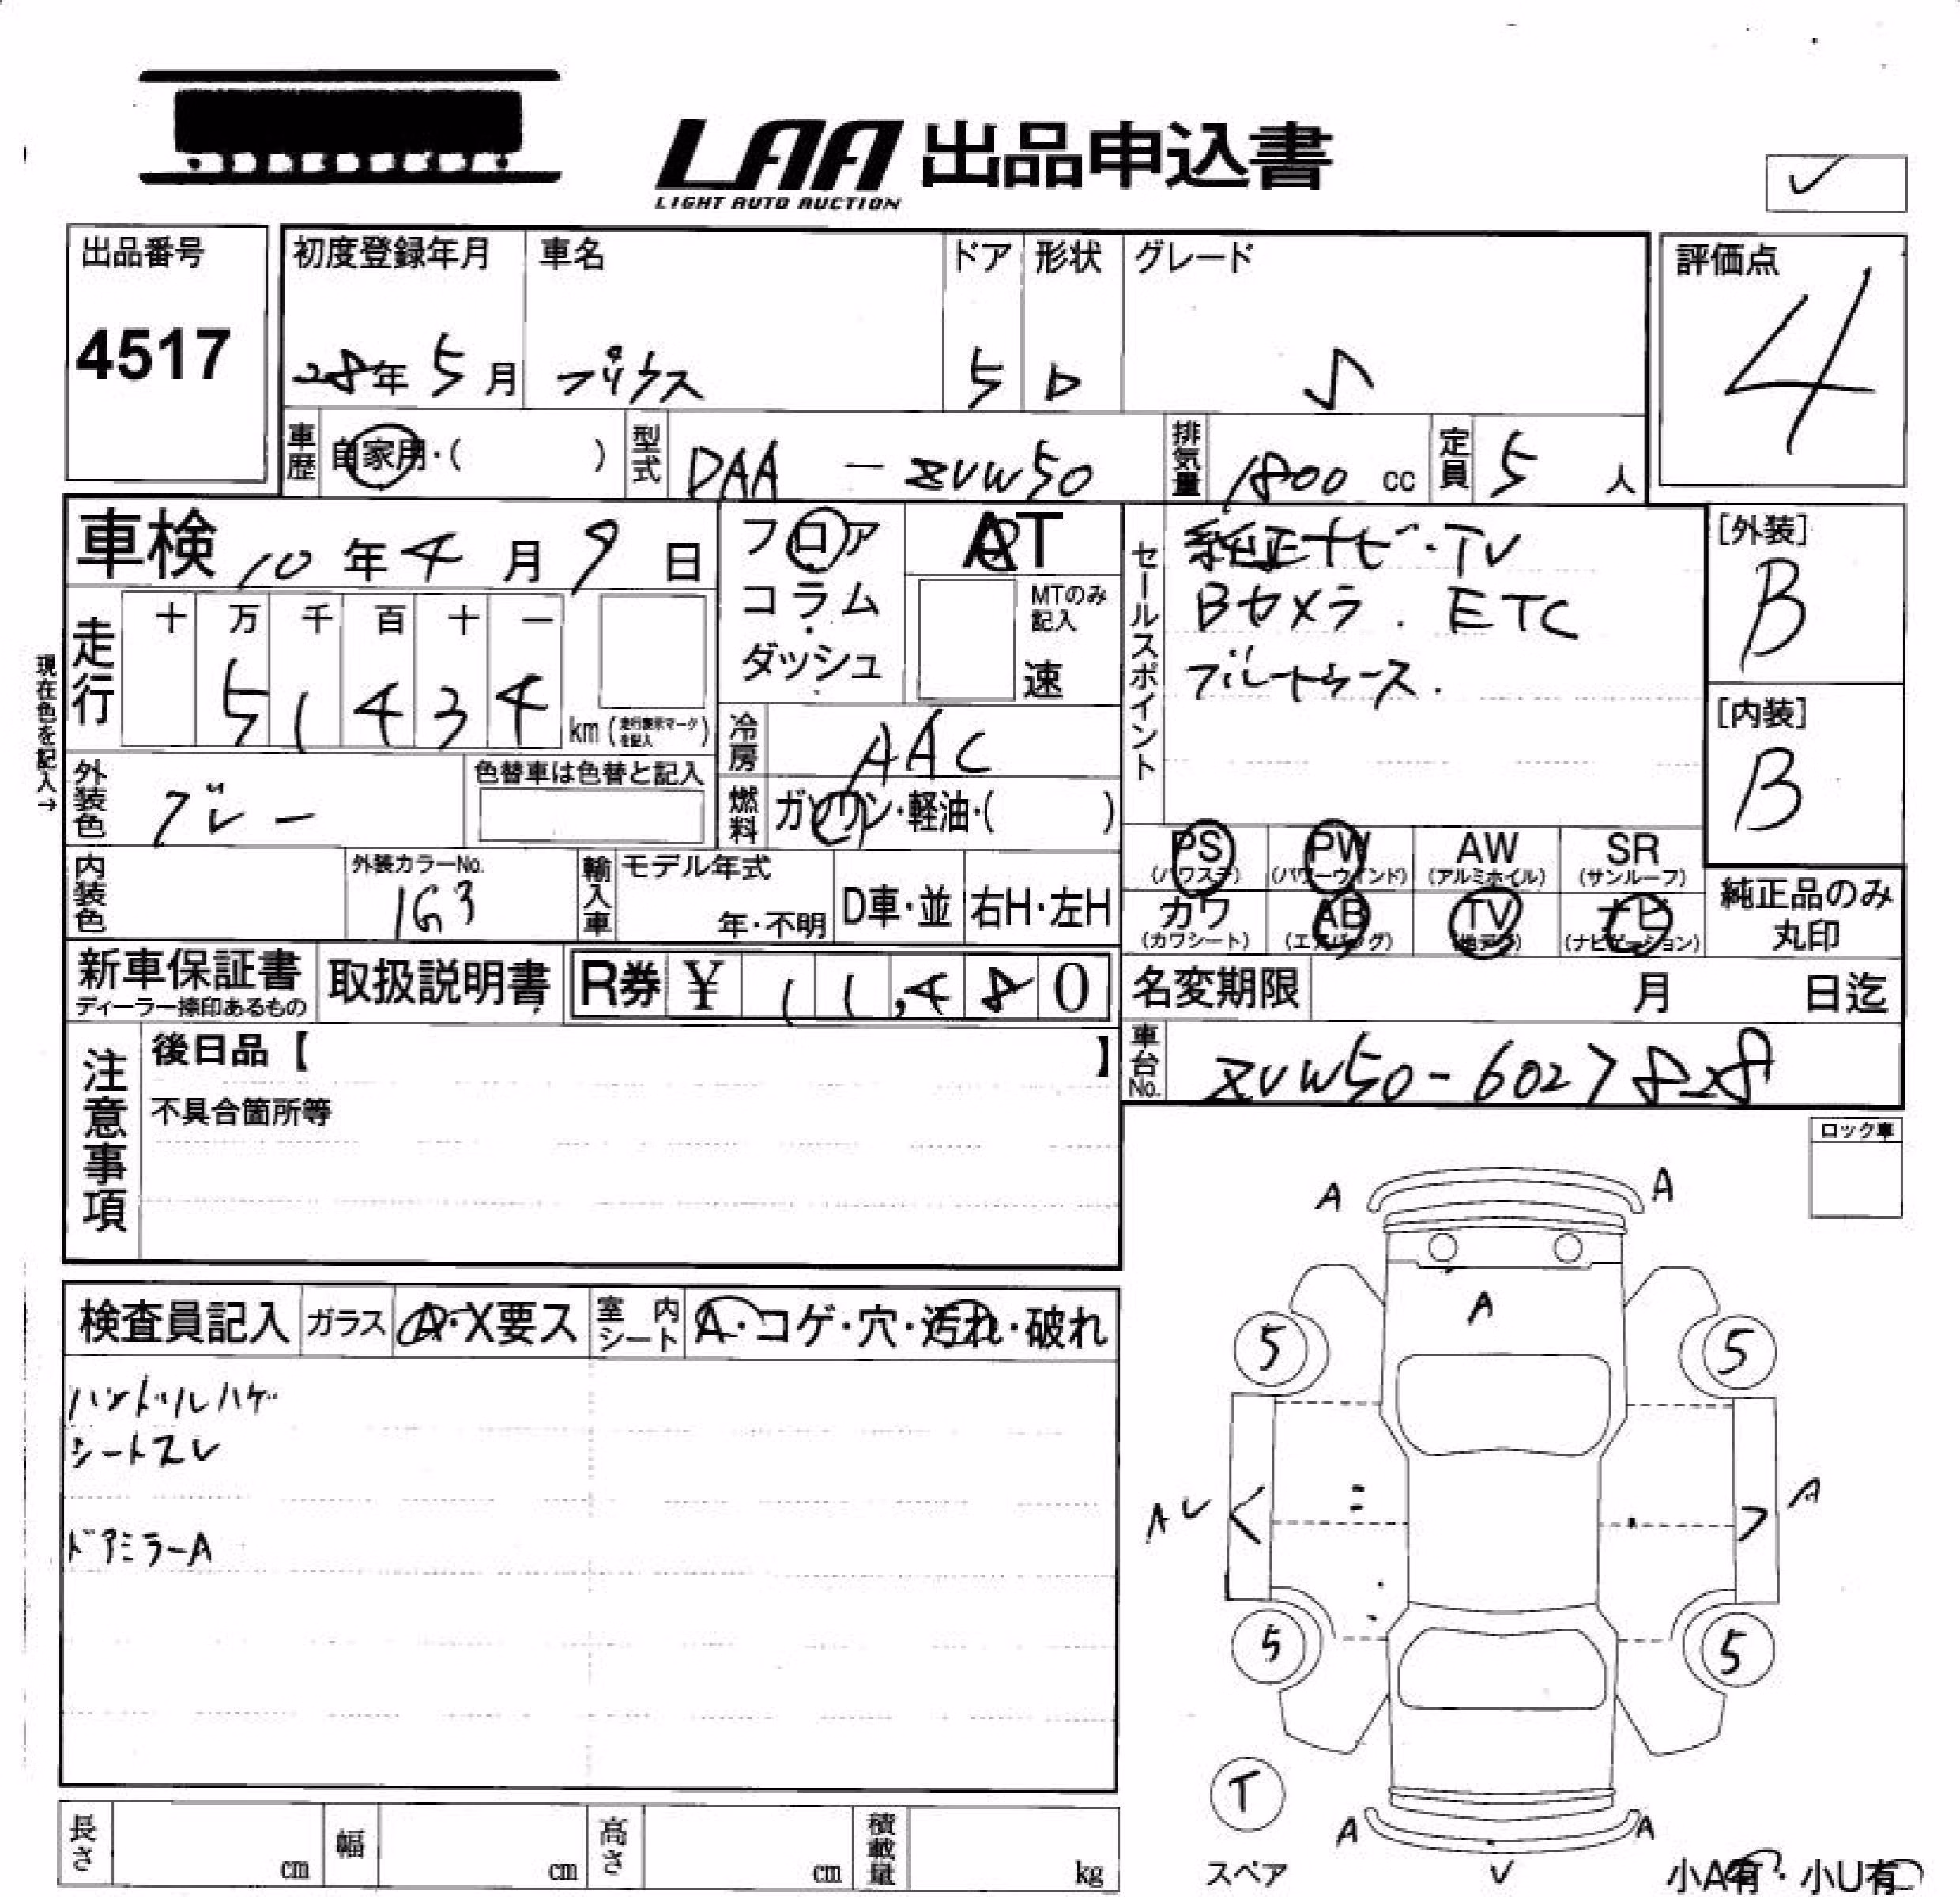 LAA 出品申込書
LIGHT AUTO AUCTION
✓
出品番号
4517
初度登録年月
28年 5月
車名
プリウス
ドア
5
形状
D
グレード
S
評価点
4
車歴
自家用・( )
型式
DAA - ZVW50
排気量
1800 cc
定員
5 人
車検 10年 4月 9日
フロア
コラム
・
ダッシュ
AT
MTのみ
記入
速
セールスポイント
純正ナビ・TV
Bカメラ . ETC
ブルートゥース.
[外装]
B
[内装]
B
現在色を記入→
走行
十 万 千 百 十 一
5 1 4 3 4
km (走行表示マークを記入)
冷房
AAC
外装色
グレー
色替車は色替と記入
燃料
ガソリン・軽油・( )
PS
(パワステ)
PW
(パワーウインド)
AW
(アルミホイル)
SR
(サンルーフ)
カワ
(カワシート)
AB
(エアバッグ)
TV
(地デジ)
ナビ
(ナビゲーション)
純正品のみ
丸印
内装色
外装カラーNo.
1G3
輸入車
モデル年式
年・不明
D車・並
右H・左H
新車保証書
ディーラー捺印あるもの
取扱説明書
R券 ¥ 1 1,4 8 0
名変期限
月 日迄
車台No.
ZVW50-6027828
注意事項
後日品【 】
不具合箇所等
ロック車
検査員記入
ガラス
A・X要ス
室内
シート
A・コゲ・穴・汚れ・破れ
ハンドルハゲ
シートスレ
ドアミラーA
A A
A
5 5
A A
5 5
T
スペア
A A
小A有・小U有
長さ
cm
幅
cm
高さ
cm
積載量
kg